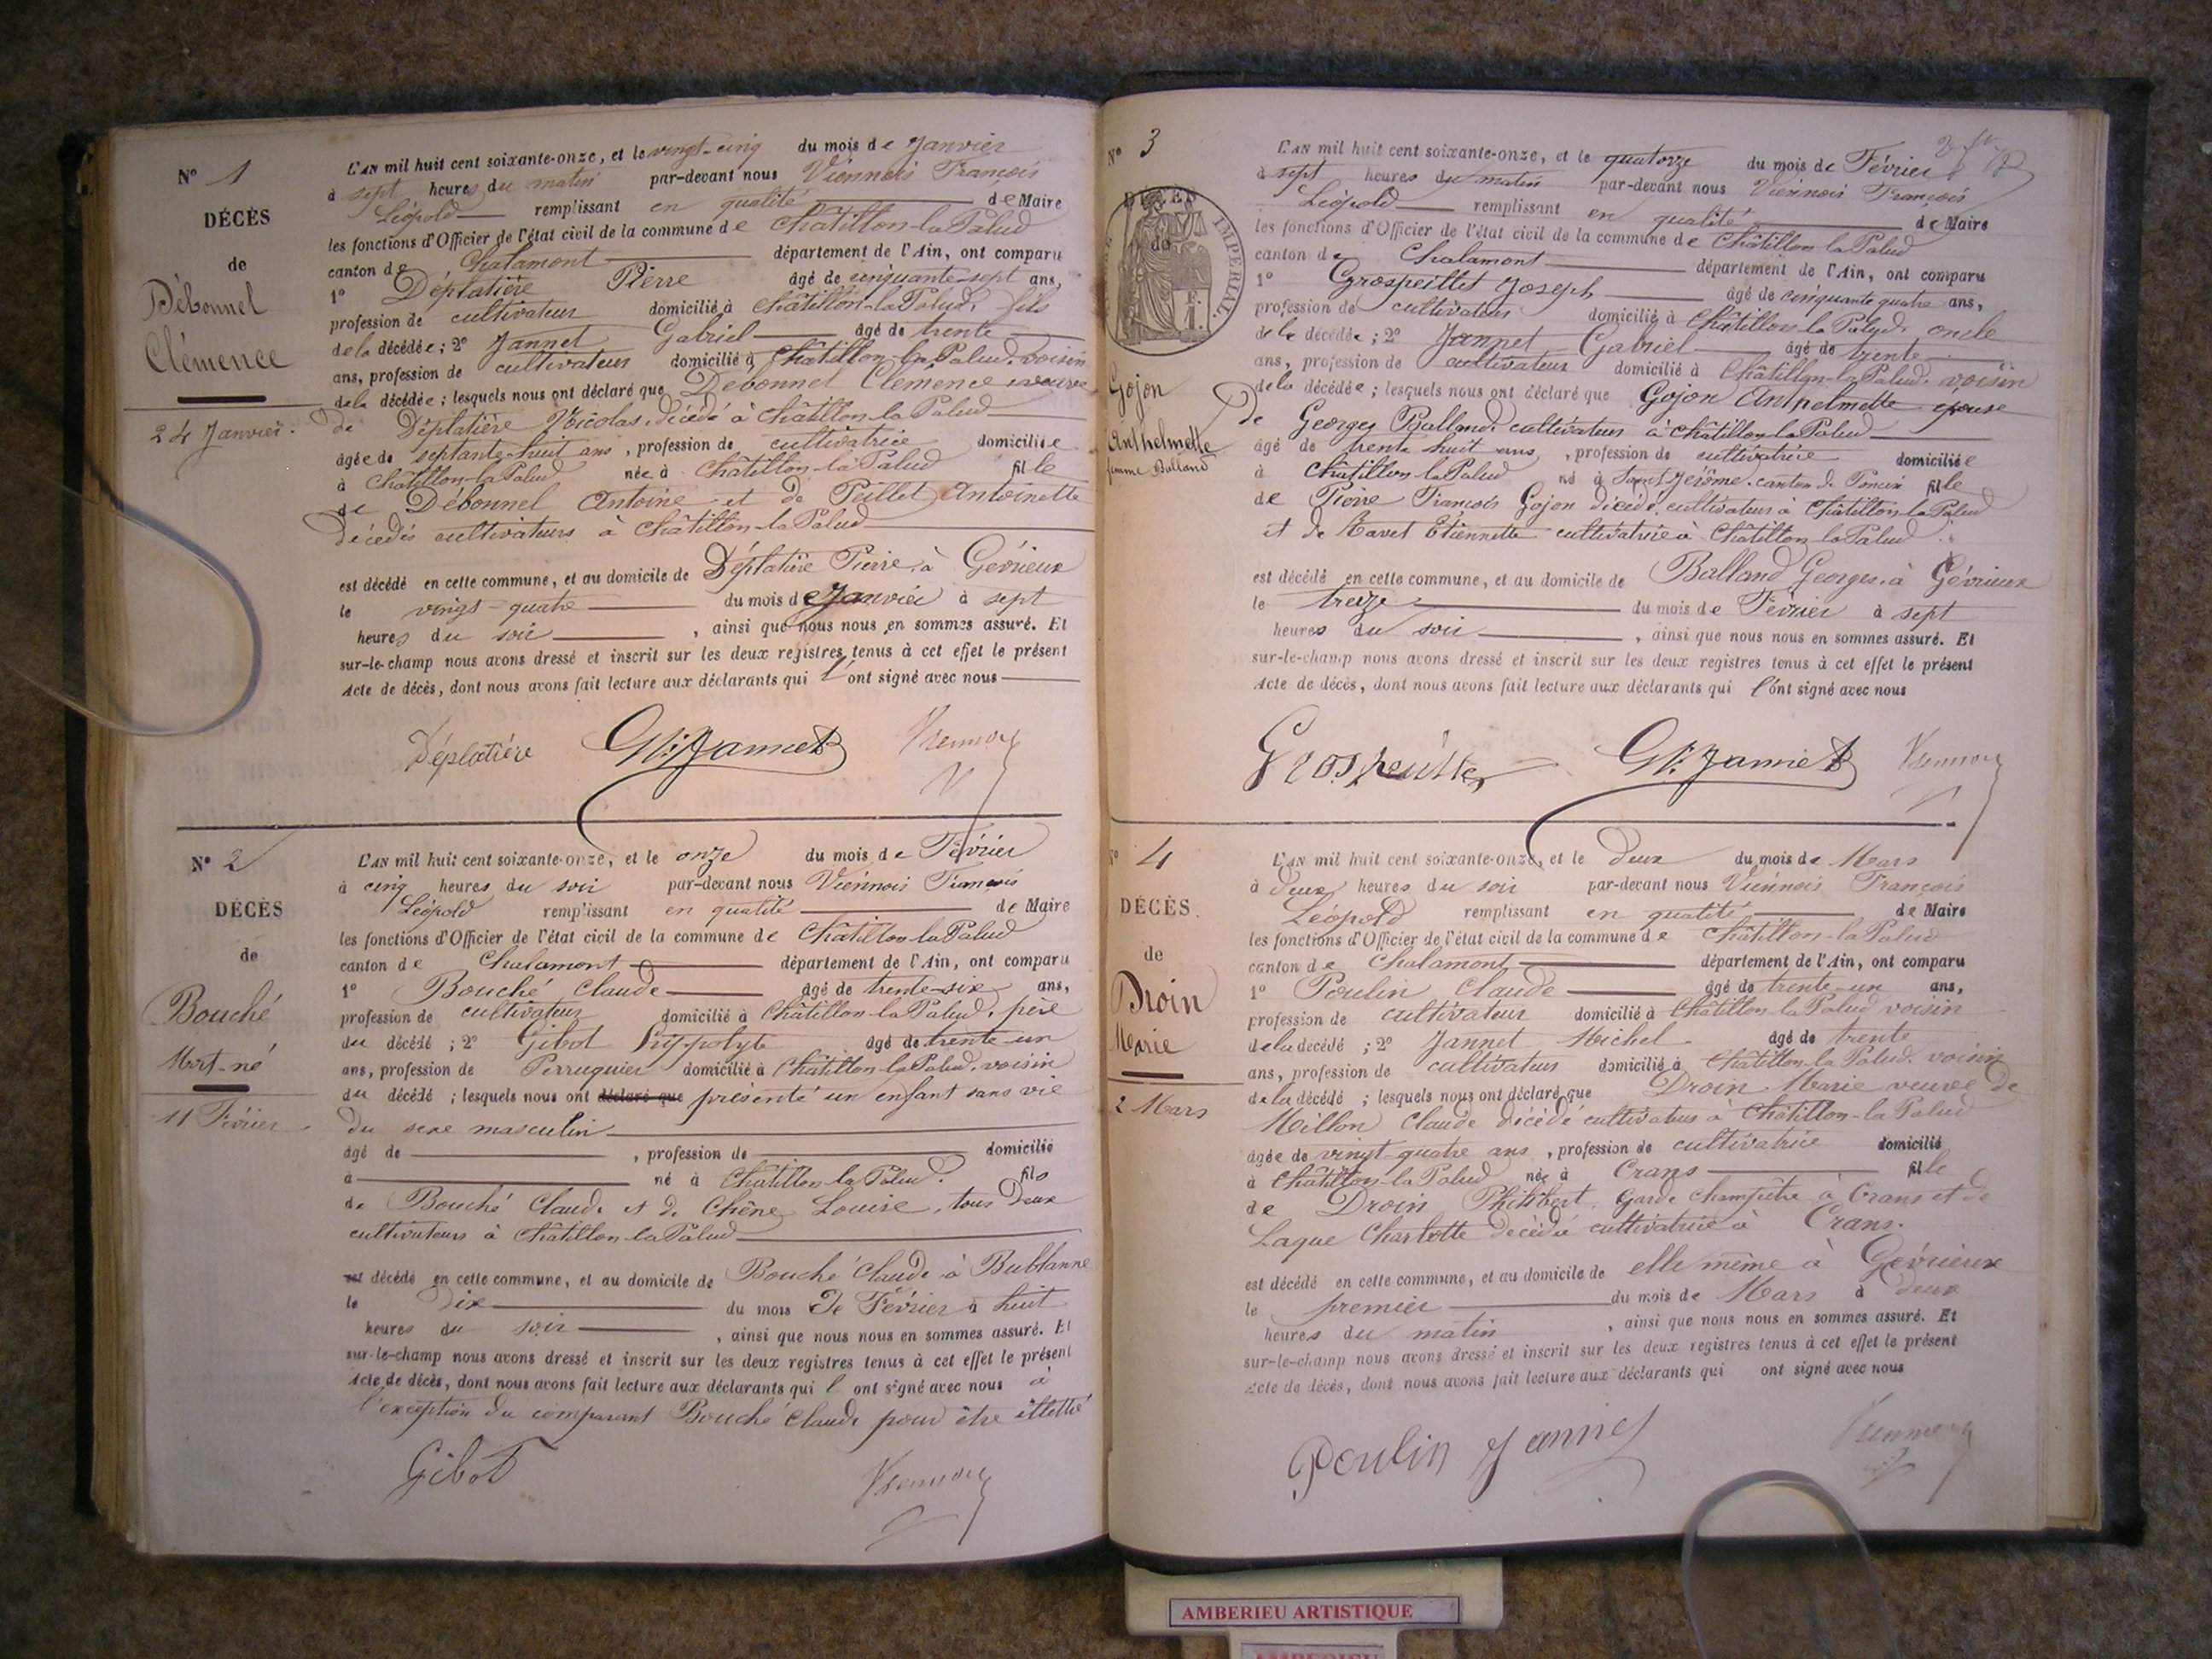 N° 1
DÉCÈS
de
Débonnel
Clémence
24 Janvier.
L'AN mil huit cent soixante-onze, et le vingt-cinq du mois de Janvier
à sept heures du matin par-devant nous Viennois François
Léopold remplissant en qualité de Maire
les fonctions d'Officier de l'état civil de la commune de Châtillon-la-Palud
canton de Chalamont département de l'Ain, ont comparu
1° Déplatière Pierre âgé de cinquante-sept ans,
profession de cultivateur domicilié à Châtillon-la-Palud, fils
de la décédée ; 2° Jannet Gabriel âgé de trente
ans, profession de cultivateur domicilié à Châtillon-la-Palud, voisin
de la décédée ; lesquels nous ont déclaré que Débonnel Clémence veuve
de Déplatière Nicolas, décédé à Châtillon-la-Palud
âgée de septante-huit ans, profession de cultivatrice domiciliée
à Châtillon-la-Palud née à Châtillon-la-Palud fille
de Débonnel Antoine et de Peillet Antoinette
décédés cultivateurs à Châtillon-la-Palud
est décédé en cette commune, et au domicile de Déplatière Pierre à Gévrieux
le vingt-quatre du mois de Janvier à sept
heures du soir, ainsi que nous nous en sommes assuré. Et
sur-le-champ nous avons dressé et inscrit sur les deux registres tenus à cet effet le présent
Acte de décès, dont nous avons fait lecture aux déclarants qui l'ont signé avec nous
Déplatière Gl Jannet Viennois
N° 2
DÉCÈS
de
Bouché
Mort-né
11 Février
L'AN mil huit cent soixante-onze, et le onze du mois de Février
à cinq heures du soir par-devant nous Viennois François
Léopold remplissant en qualité de Maire
les fonctions d'Officier de l'état civil de la commune de Châtillon la Palud
canton de Chalamont département de l'Ain, ont comparu
1° Bouché Claude âgé de trente-six ans,
profession de cultivateur domicilié à Châtillon-la-Palud, père
du décédé ; 2° Gibot Hippolyte âgé de trente un
ans, profession de Perruquier domicilié à Châtillon-la-Palud, voisin
du décédé ; lesquels nous ont déclaré que présenté un enfant sans vie
du sexe masculin
âgé de , profession de domicilié
à né à Châtillon-la-Palud. fils
de Bouché Claude et de Chêne Louise, tous deux
cultivateurs à Châtillon-la-Palud
est décédé en cette commune, et au domicile de Bouché Claude à Bublanne
le dix du mois de Février à huit
heures du soir, ainsi que nous nous en sommes assuré. Et
sur-le-champ nous avons dressé et inscrit sur les deux registres tenus à cet effet le présent
Acte de décès, dont nous avons fait lecture aux déclarants qui l'ont signé avec nous à
l'exception du comparant Bouché Claude pour être illettré
Gibot Viennois
N° 3
DÉCÈS
de
IMPÉRIAL.
Gojon
Anthelmette
femme Balland
L'AN mil huit cent soixante-onze, et le quatorze du mois de Février
à sept heures du matin par-devant nous Viennois François
Léopold remplissant en qualité de Maire
les fonctions d'Officier de l'état civil de la commune de Châtillon la Palud
canton de Chalamont département de l'Ain, ont comparu
1° Grospeillet Joseph âgé de cinquante quatre ans,
profession de cultivateur domicilié à Châtillon la Palud, oncle
de la décédée ; 2° Jannet Gabriel âgé de trente
ans, profession de cultivateur domicilié à Châtillon-la-Palud, voisin
de la décédée ; lesquels nous ont déclaré que Gojon Anthelmette épouse
De Georges Balland, cultivateur à Châtillon la Palud
âgé de trente huit ans, profession de cultivatrice domiciliée
à Châtillon la Palud né à Saint Jérôme, canton de Poncin fille
de Pierre François Gojon décédé, cultivateur à Châtillon la Palud
et de Ravet Etiennette cultivatrice à Châtillon la Palud
est décédé en cette commune, et au domicile de Balland Georges, à Gévrieux
le treize du mois de Février à sept
heures du soir, ainsi que nous nous en sommes assuré. Et
sur-le-champ nous avons dressé et inscrit sur les deux registres tenus à cet effet le présent
Acte de décès, dont nous avons fait lecture aux déclarants qui l'ont signé avec nous
Grospeillet Gl Jannet Viennois
N° 4
DÉCÈS.
de
Droin
Marie
2 Mars
L'AN mil huit cent soixante-onze, et le deux du mois de Mars
à deux heures du soir par-devant nous Viennois François
Léopold remplissant en qualité de Maire
les fonctions d'Officier de l'état civil de la commune de Châtillon-la-Palud
canton de Chalamont département de l'Ain, ont comparu
1° Poulin Claude âgé de trente-un ans,
profession de cultivateur domicilié à Châtillon-la-Palud voisin
de la décédé ; 2° Jannet Michel âgé de trente
ans, profession de cultivateur domicilié à Châtillon-la-Palud, voisin
de la décédé ; lesquels nous ont déclaré que Droin Marie veuve de
Millon Claude décédé cultivateur à Châtillon-la-Palud
âgée de vingt-quatre ans, profession de cultivatrice domicilié
à Châtillon-la-Palud née à Crans fille
de Droin Philibert Garde Champêtre à Crans et de
Laque Charlotte décédée cultivatrice à Crans.
est décédé en cette commune, et au domicile de elle même à Gévrieux
le premier du mois de Mars à deux
heures du matin, ainsi que nous nous en sommes assuré. Et
sur-le-champ nous avons dressé et inscrit sur les deux registres tenus à cet effet le présent
Acte de décès, dont nous avons fait lecture aux déclarants qui ont signé avec nous
Poulin Jannet Viennois
AMBERIEU ARTISTIQUE
AMBERIEU